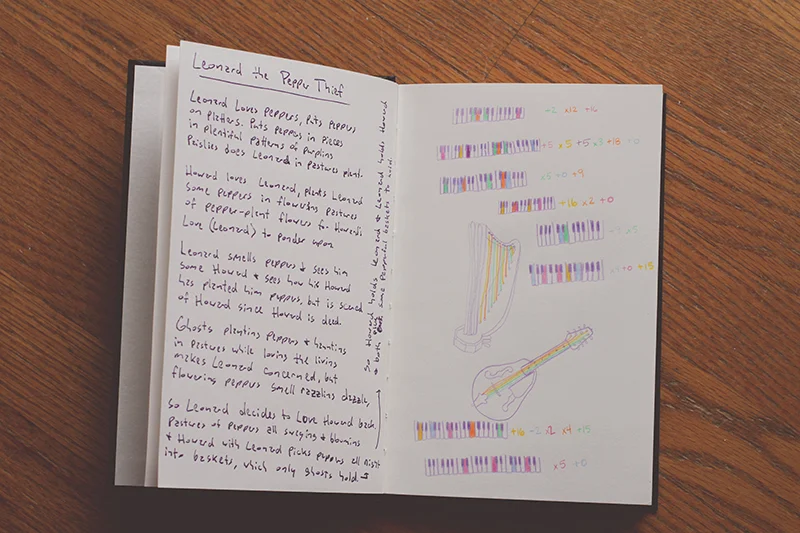 Leonard the Pepper Thief
Leonard Loves peppers, Puts peppers
on platters. Puts peppers in pieces
in plentiful patterns of purpling
Paislies does Leonard in pastures plent.
Howard loves Leonard, plants Leonard
some peppers in flowering pastures
of pepper-plant flowers for Howard's
Love (Leonard) to ponder upon
Leonard smells peppers & sees him
some Howard & sees how his Howard
has planted him peppers, but is scared
of Howard since Howard is dead.
Ghosts planting peppers & haunting
in pastures while loving the living
makes Leonard concerned, but
flowering peppers smell razzling dazzle,
so Leonard decides to Love Howard back.
Pastures of peppers all swaying & blooming
& Howard with Leonard picks peppers all night
into baskets, which only ghosts hold.
So Howard holds Leonard & Leonard holds Howard
& both some pepperful baskets to
+2 x12 +16
+5 x5 +5 x3 +18 +0
x5 +0 +9
+16 x2 +0
+0 +15
+16 -2 x2 x4 +15
x5 +0